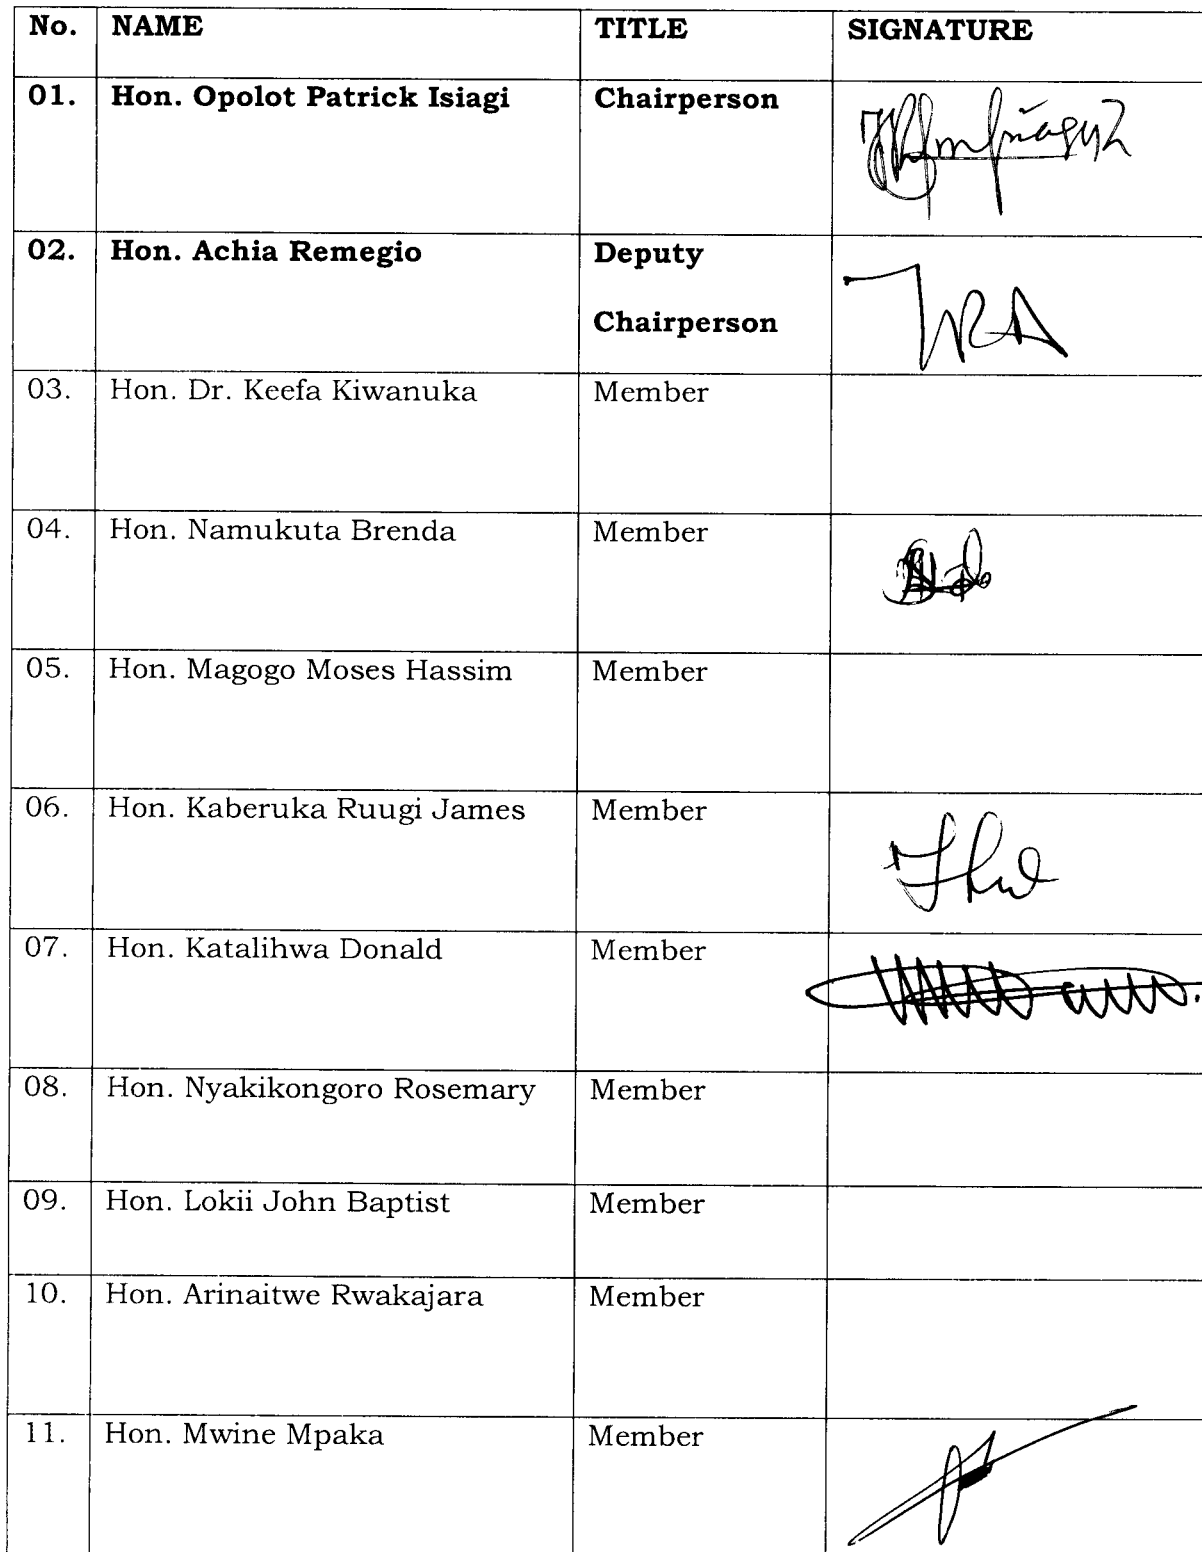 No. NAME TITLE SIGNATURE
01. Hon. Opolot Patrick Isiagi Chairperson
02. Hon. Achia Remegio Deputy
Chairperson
03. Hon. Dr. Keefa Kiwanuka Member
04. Hon. Namukuta Brenda Member
05. Hon. Magogo Moses Hassim Member
06. Hon. Kaberuka Ruugi James Member
07. Hon. Katalihwa Donald Member
08. Hon. Nyakikongoro Rosemary Member
09. Hon. Lokii John Baptist Member
10. Hon. Arinaitwe Rwakajara Member
11. Hon. Mwine Mpaka Member